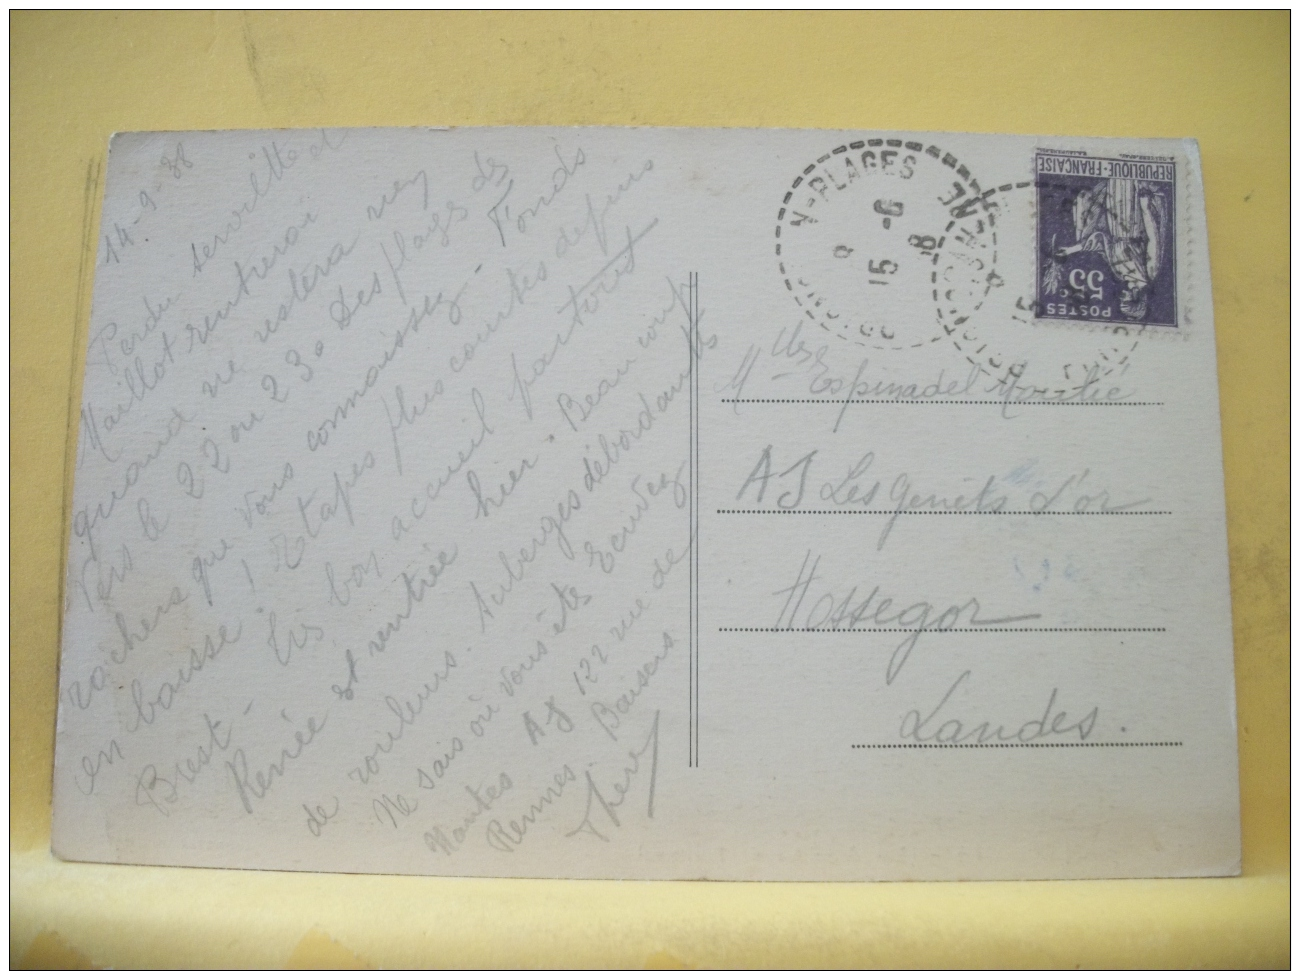 14-9-38
Perdu serviette et
Maillot rentrerai
quand me restera rien
Vers le 22 ou 23. Des plages des
rochers que vous connaissez - Fonds
en baisse ! Etapes plus courtes depuis
Brest - Très bon accueil partout
Renée est rentrée hier. Beaucoup
de rouleurs. Auberges débordantes
Ne sais où vous êtes Ecrivez
Nantes AJ 122 rue de
Rennes Baisers
Mlles Espinadel
AJ Les Genêts d'or
Hossegor
Landes.
N-PLAGES
15 -6
REPUBLIQUE-FRANCAISE
55c
POSTES